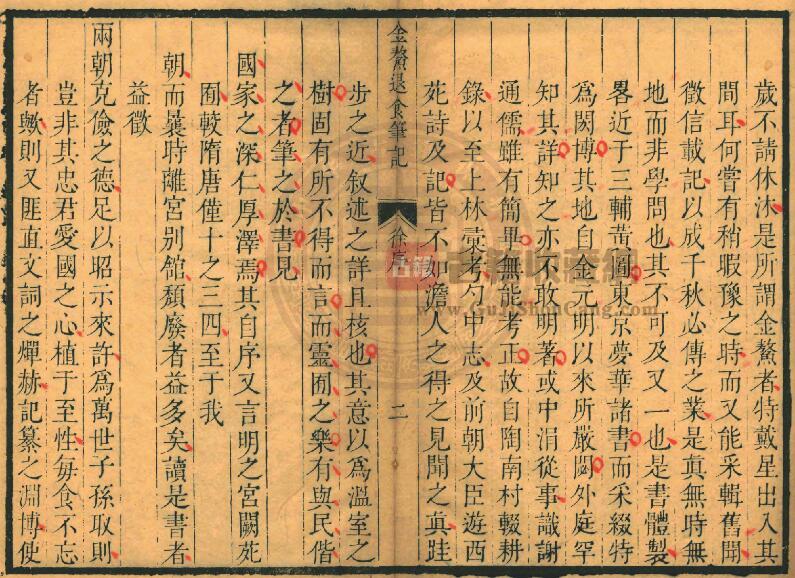 歲不請休沐是所謂金鰲者特戴星出入其
間耳何嘗有稍暇豫之時而又能采輯舊聞
徵信載記以成千秋必傳之業是眞無時無
地而非學問也其不可及又一也是書體製
畧近于三輔黃圖東京夢華諸書而采綴特
爲閎博其地自金元明以來所嚴閟外庭罕
知其詳知之亦不敢明著或中涓從事識謝
通儒雖有簡畢無能考正故自陶南村輟耕
錄以至上林彙考勺中志及前朝大臣遊西
苑詩及記皆不如澹人之得之見聞之眞跬
金鰲退食筆記
徐序
二
步之近叙述之詳且核也其意以爲溫室之
樹固有所不得而言而靈囿之樂有與民偕
之者筆之於書見
國家之深仁厚澤焉其自序又言明之宮闕苑
囿較隋唐僅十之三四至于我
朝而曩時離宮别館頹廢者益多矣讀是書者
益徵
兩朝克儉之德足以昭示來許爲萬世子孫取則
豈非其忠君愛國之心植于至性每食不忘
者歟則又匪直文詞之燀赫記纂之淵博使